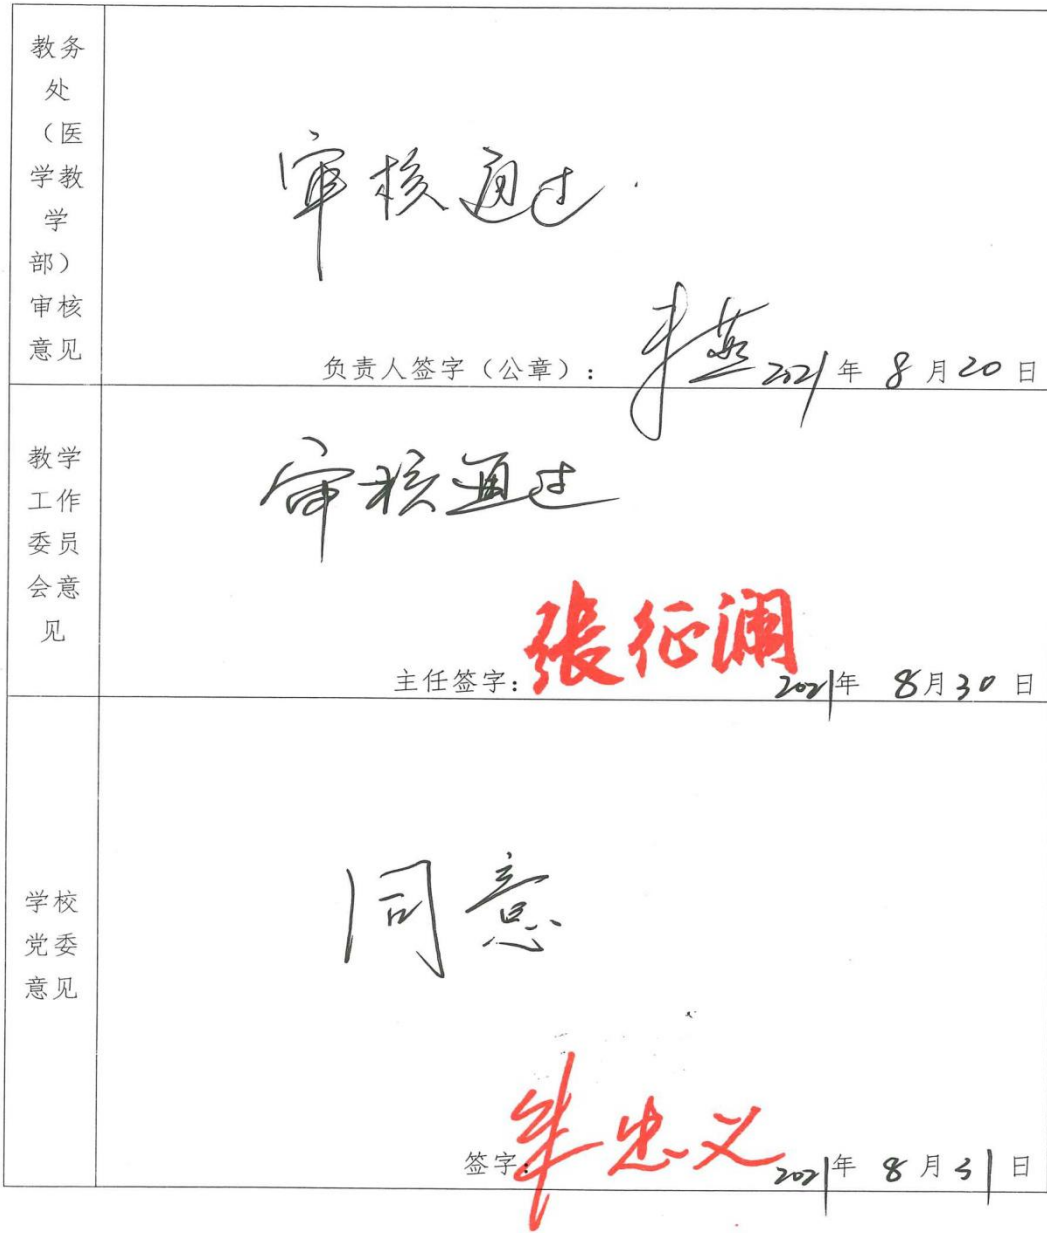 教务
处
（医
学教
学
部）
审核
意见
审核通过.
负责人签字（公章）： 燕 2021年 8月20日
教学
工作
委员
会意
见
审核通过
主任签字：張征澜 2021年 8月30日
学校
党委
意见
同意
签字：牟忠义 2021年 8月31日